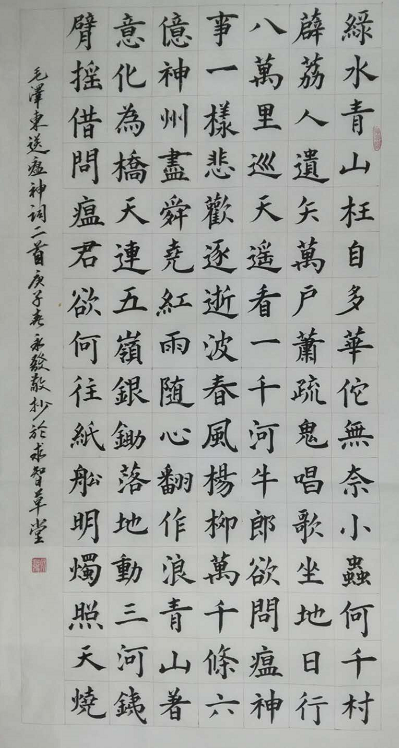 綠水青山枉自多華佗無奈小蟲何千村
薜荔人遺矢萬戶蕭疏鬼唱歌坐地日行
八萬里巡天遥看一千河牛郎欲問瘟神
事一樣悲歡逐逝波春風楊柳萬千條六
億神州盡舜堯紅雨随心翻作浪青山著
意化為橋天連五嶺銀鋤落地動三河銕
臂摇借問瘟君欲何往紙船明燭照天燒
毛澤東送瘟神詞二首庚子春永發敬抄於求智草堂